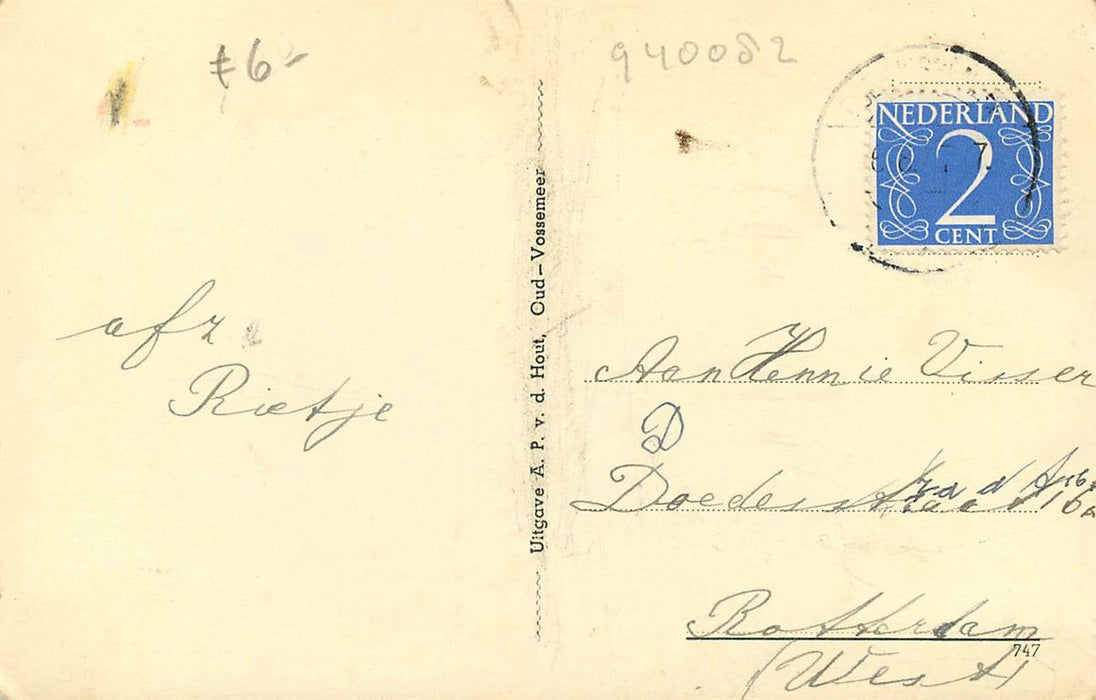 €6-
940082
NEDERLAND
2
CENT
afz
Rietje
Uitgave A. P. v. d. Hout, Oud-Vossemeer
Aan Hennie Visser
D
Doedesstraat 16
Rotterdam
747
(West)